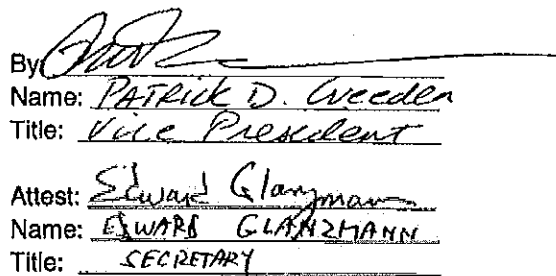 By
Name: PATRICK D. Creeden
Title: Vice President
Attest: Edward Glanzmann
Name: EDWARD GLANZMANN
Title: SECRETARY